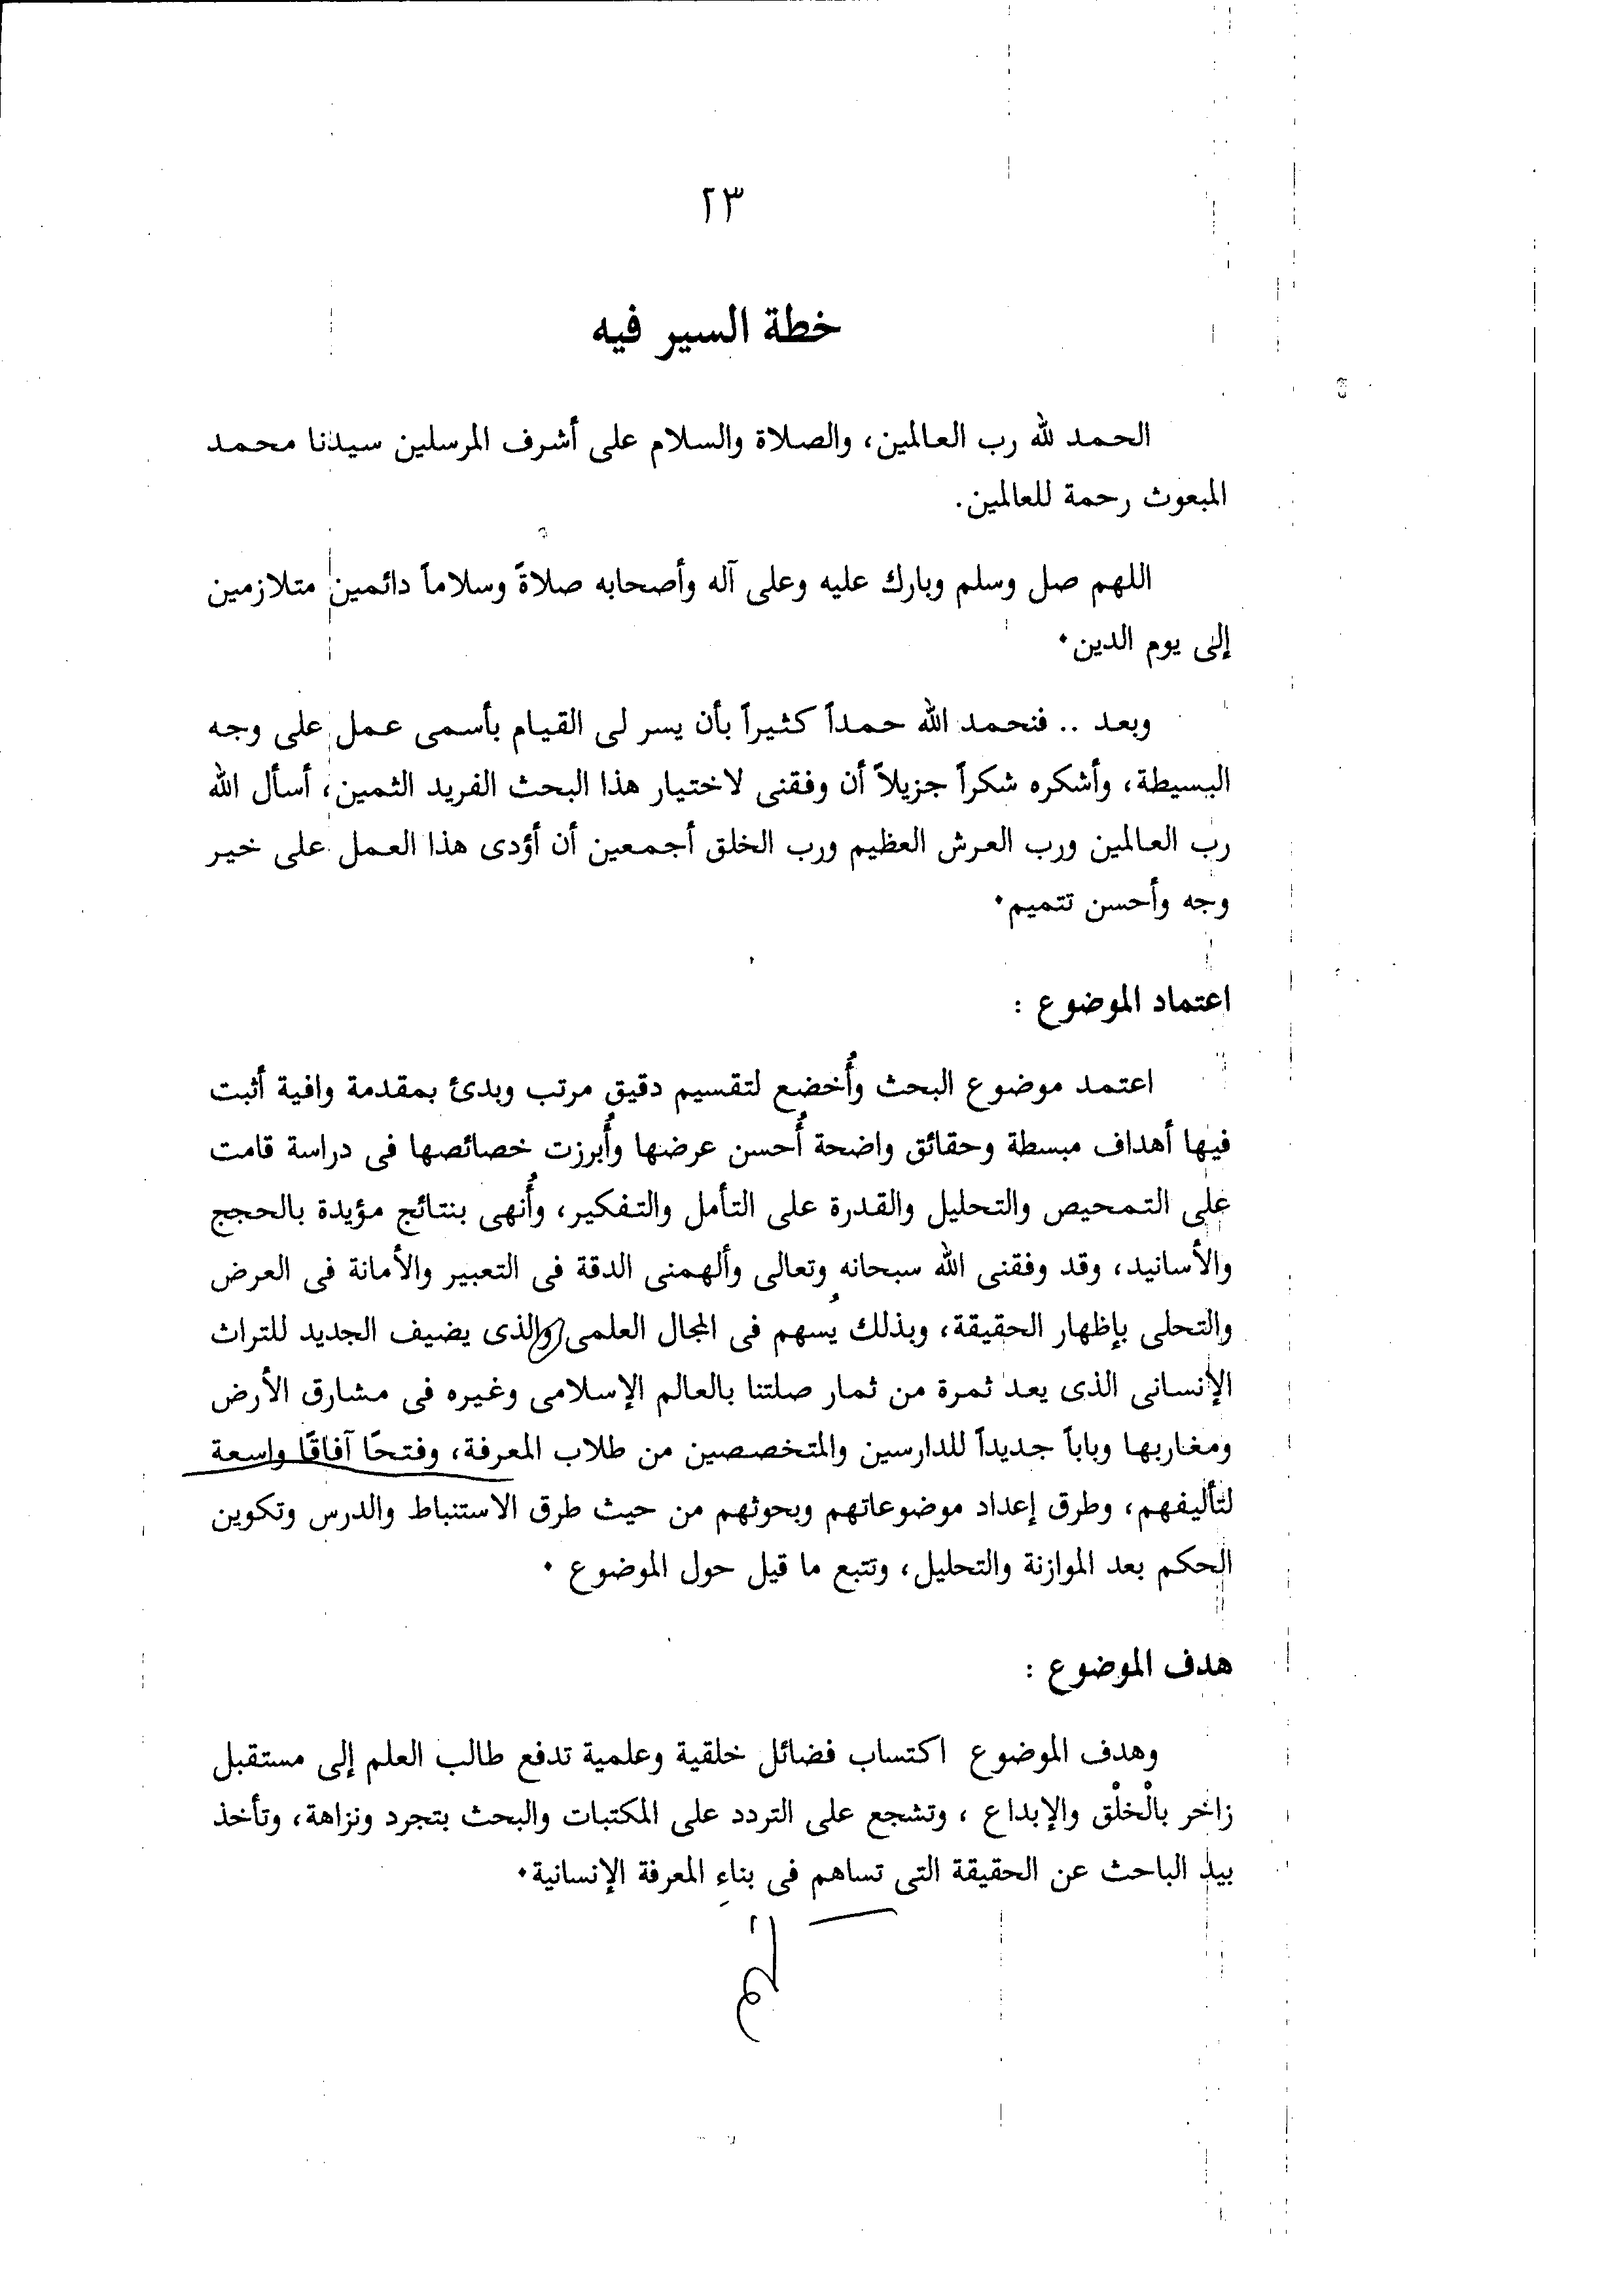 ٢٣
خطة السير فيه
الحمد لله رب العالمين، والصلاة والسلام على أشرف المرسلين سيدنا محمد
المبعوث رحمة للعالمين.
اللهم صل وسلم وبارك عليه وعلى آله وأصحابه صلاةً وسلاماً دائمين متلازمين
إلى يوم الدين٠
وبعد .. فنحمد الله حمداً كثيراً بأن يسر لى القيام بأسمى عمل على وجه
البسيطة، وأشكره شكراً جزيلاً أن وفقنى لاختيار هذا البحث الفريد الثمين، أسأل الله
رب العالمين ورب العرش العظيم ورب الخلق أجمعين أن أؤدى هذا العمل على خير
وجه وأحسن تتميم٠
اعتماد الموضوع :
اعتمد موضوع البحث وأُخضع لتقسيم دقيق مرتب وبدئ بمقدمة وافية أثبت
فيها أهداف مبسطة وحقائق واضحة أُحسن عرضها وأُبرزت خصائصها فى دراسة قامت
على التمحيص والتحليل والقدرة على التأمل والتفكير، وأُنهى بنتائج مؤيدة بالحجج
والأسانيد، وقد وفقنى الله سبحانه وتعالى وألهمنى الدقة فى التعبير والأمانة فى العرض
والتحلى بإظهار الحقيقة، وبذلك يُسهم فى المجال العلمى والذى يضيف الجديد للتراث
الإنسانى الذى يعد ثمرة من ثمار صلتنا بالعالم الإسلامى وغيره فى مشارق الأرض
ومغاربها وباباً جديداً للدارسين والمتخصصين من طلاب المعرفة، وفتحًا آفاقًا واسعة
لتأليفهم، وطرق إعداد موضوعاتهم وبحوثهم من حيث طرق الاستنباط والدرس وتكوين
الحكم بعد الموازنة والتحليل، وتتبع ما قيل حول الموضوع ٠
هدف الموضوع :
وهدف الموضوع اكتساب فضائل خلقية وعلمية تدفع طالب العلم إلى مستقبل
زاخر بالْخلْق والإبداع ، وتشجع على التردد على المكتبات والبحث بتجرد ونزاهة، وتأخذ
بيد الباحث عن الحقيقة التى تساهم فى بناءِ المعرفة الإنسانية٠